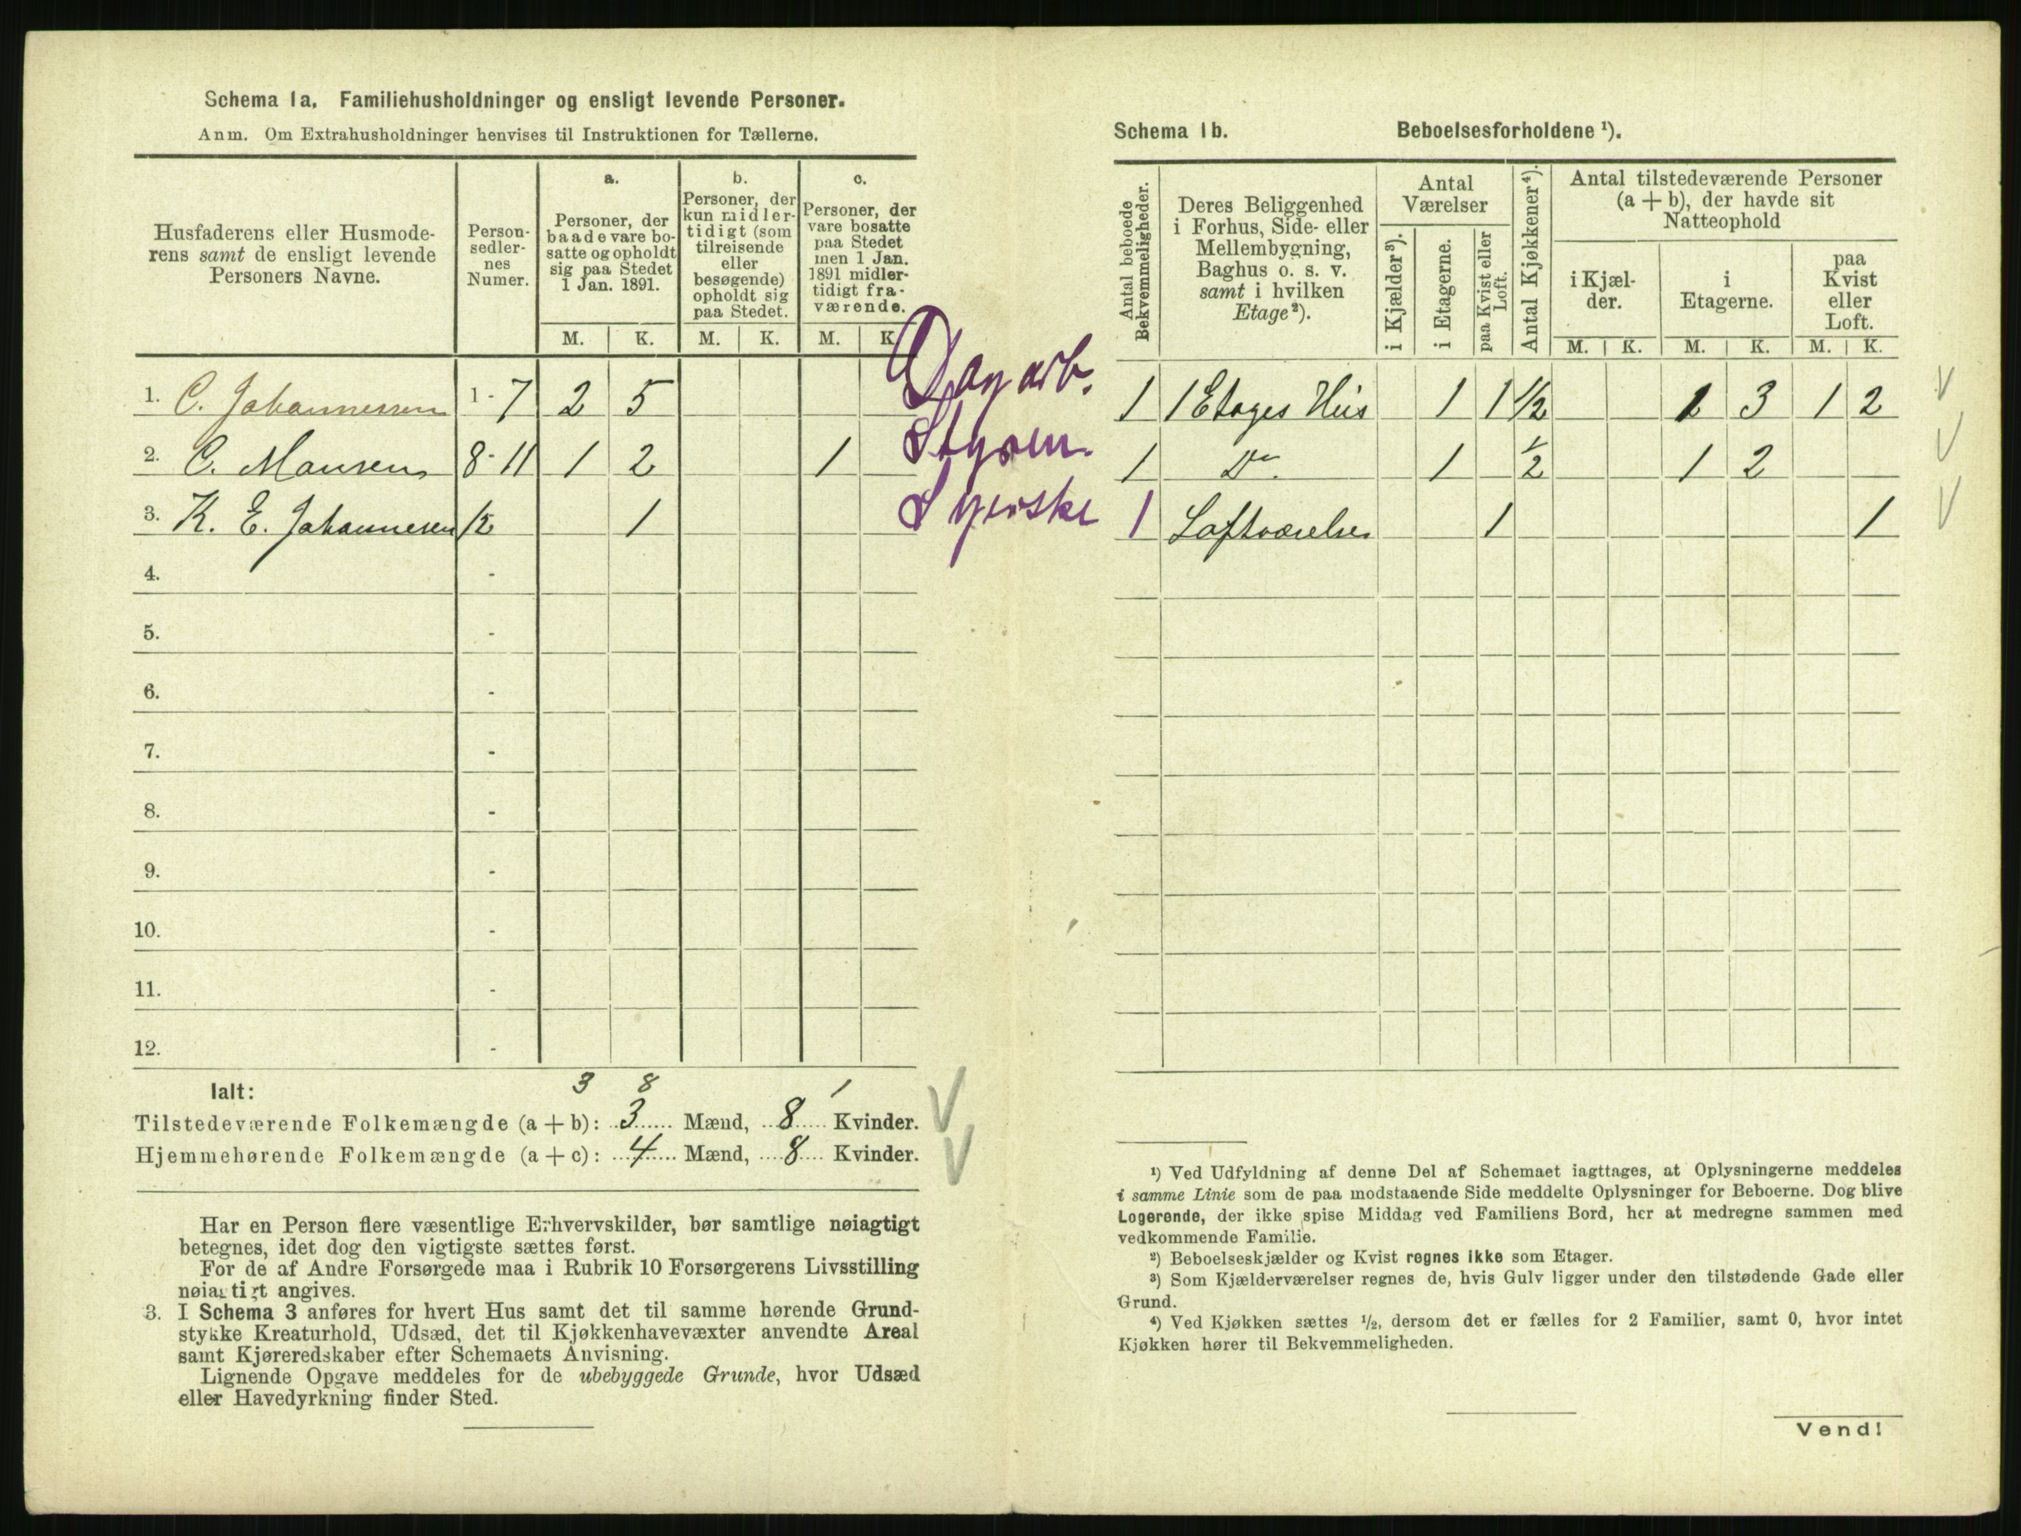 Schema 1a. Familiehusholdninger og ensligt levende Personer.
Anm. Om Extrahusholdninger henvises til Instruktionen for Tællerne.
Husfaderens eller Husmoderens samt de ensligt levende Personers Navne.
Person-sedlernes Numer.
a.
Personer, der baade vare bosatte og opholdt sig paa Stedet 1 Jan. 1891.
b.
Personer, der kun midlertidigt (som tilreisende eller besøgende) opholdt sig paa Stedet.
c.
Personer, der vare bosatte paa Stedet men 1 Jan. 1891 midlertidigt fraværende.
M. K. M. K. M. K.
1. C. Johannessen 1 - 7 2 5 Dagarb.
2. C. Mausen 8 - 11 1 2 1 Styrm.
3. K. E. Johannesen 12 1 Syerske
4. -
5. -
6. -
7. -
8. -
9. -
10. -
11. -
12. -
Ialt: 3 8 1
Tilstedeværende Folkemængde (a + b): 3 Mænd, 8 Kvinder.
Hjemmehørende Folkemængde (a + c): 4 Mænd, 8 Kvinder.
Har en Person flere væsentlige Erhvervskilder, bør samtlige nøiagtigt
betegnes, idet dog den vigtigste sættes først.
For de af Andre Forsørgede maa i Rubrik 10 Forsørgerens Livsstilling
nøiagtigt angives.
3. I Schema 3 anføres for hvert Hus samt det til samme hørende Grund-
stykke Kreaturhold, Udsæd, det til Kjøkkenhavevæxter anvendte Areal
samt Kjøreredskaber efter Schemaets Anvisning.
Lignende Opgave meddeles for de ubebyggede Grunde, hvor Udsæd
eller Havedyrkning finder Sted.
Schema 1b. Beboelsesforholdene ¹).
Antal beboede Bekvemmeligheder.
Deres Beliggenhed i Forhus, Side- eller Mellembygning, Baghus o. s. v. samt i hvilken Etage ²).
Antal Værelser
i Kjælder ³).
i Etagerne.
paa Kvist eller Loft.
Antal Kjøkkener ⁴).
Antal tilstedeværende Personer (a + b), der havde sit Natteophold
i Kjælder.
i Etagerne.
paa Kvist eller Loft.
M. K. M. K. M. K.
1 1 Etages Hus 1 1 1/2 1 3 1 2
1 Do. 1 1/2 1 2
1 Loftværelse 1 1
¹) Ved Udfyldning af denne Del af Schemaet iagttages, at Oplysningerne meddeles
i samme Linie som de paa modstaaende Side meddelte Oplysninger for Beboerne. Dog blive
Logerende, der ikke spise Middag ved Familiens Bord, her at medregne sammen med
vedkommende Familie.
²) Beboelseskjælder og Kvist regnes ikke som Etager.
³) Som Kjælderværelser regnes de, hvis Gulv ligger under den tilstødende Gade eller
Grund.
⁴) Ved Kjøkken sættes ½, dersom det er fælles for 2 Familier, samt 0, hvor intet
Kjøkken hører til Bekvemmeligheden.
Vend!